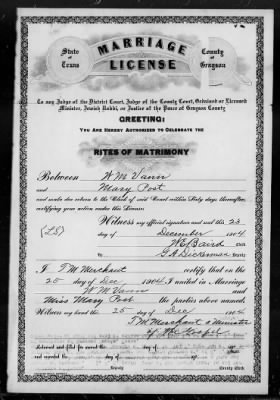 MARRIAGE
LICENSE
State of Texas
County of Grayson
To any Judge of the District Court, Judge of the County Court, Ordained or Licensed
Minister, Jewish Rabbi, or Justice of the Peace of Grayson County
GREETING:
YOU ARE HEREBY AUTHORIZED TO CELEBRATE THE
RITES OF MATRIMONY
Between W M Vann
and Mary Post
and make due return to the Clerk of said Court within Sixty days thereafter,
certifying your action under this License.
Witness my official signature and seal this 23
(LS) day of December 1904
W E Baird
G A Dickerman Deputy
I T M Merchant certify that on the
25 day of Dec 1904 I united in Marriage
W M Vann
Miss Mary Post the parties above named.
Witness my hand this 25 day of Dec 1904
T M Merchant a Minister
of the Gospel
Returned and filed for record the
Deputy County Clerk